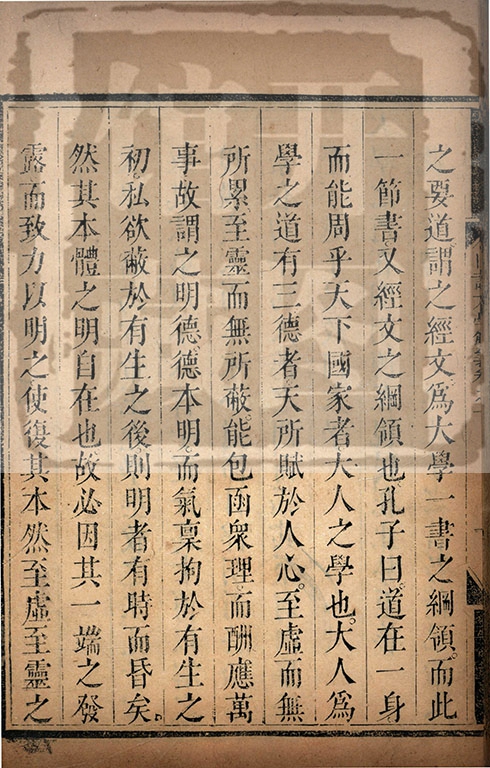 之要道謂之經文爲大學一書之綱領而此
一節書又經文之綱領也孔子曰道在一身
而能周乎天下國家者大人之學也大人爲
學之道有三德者天所賦於人心至虛而無
所累至靈而無所蔽能包函衆理而酬應萬
事故謂之明德德本明而氣稟拘於有生之
初私欲蔽於有生之後則明者有時而昏矣
然其本體之明自在也故必因其一端之發
露而致力以明之使復其本然至虛至靈之